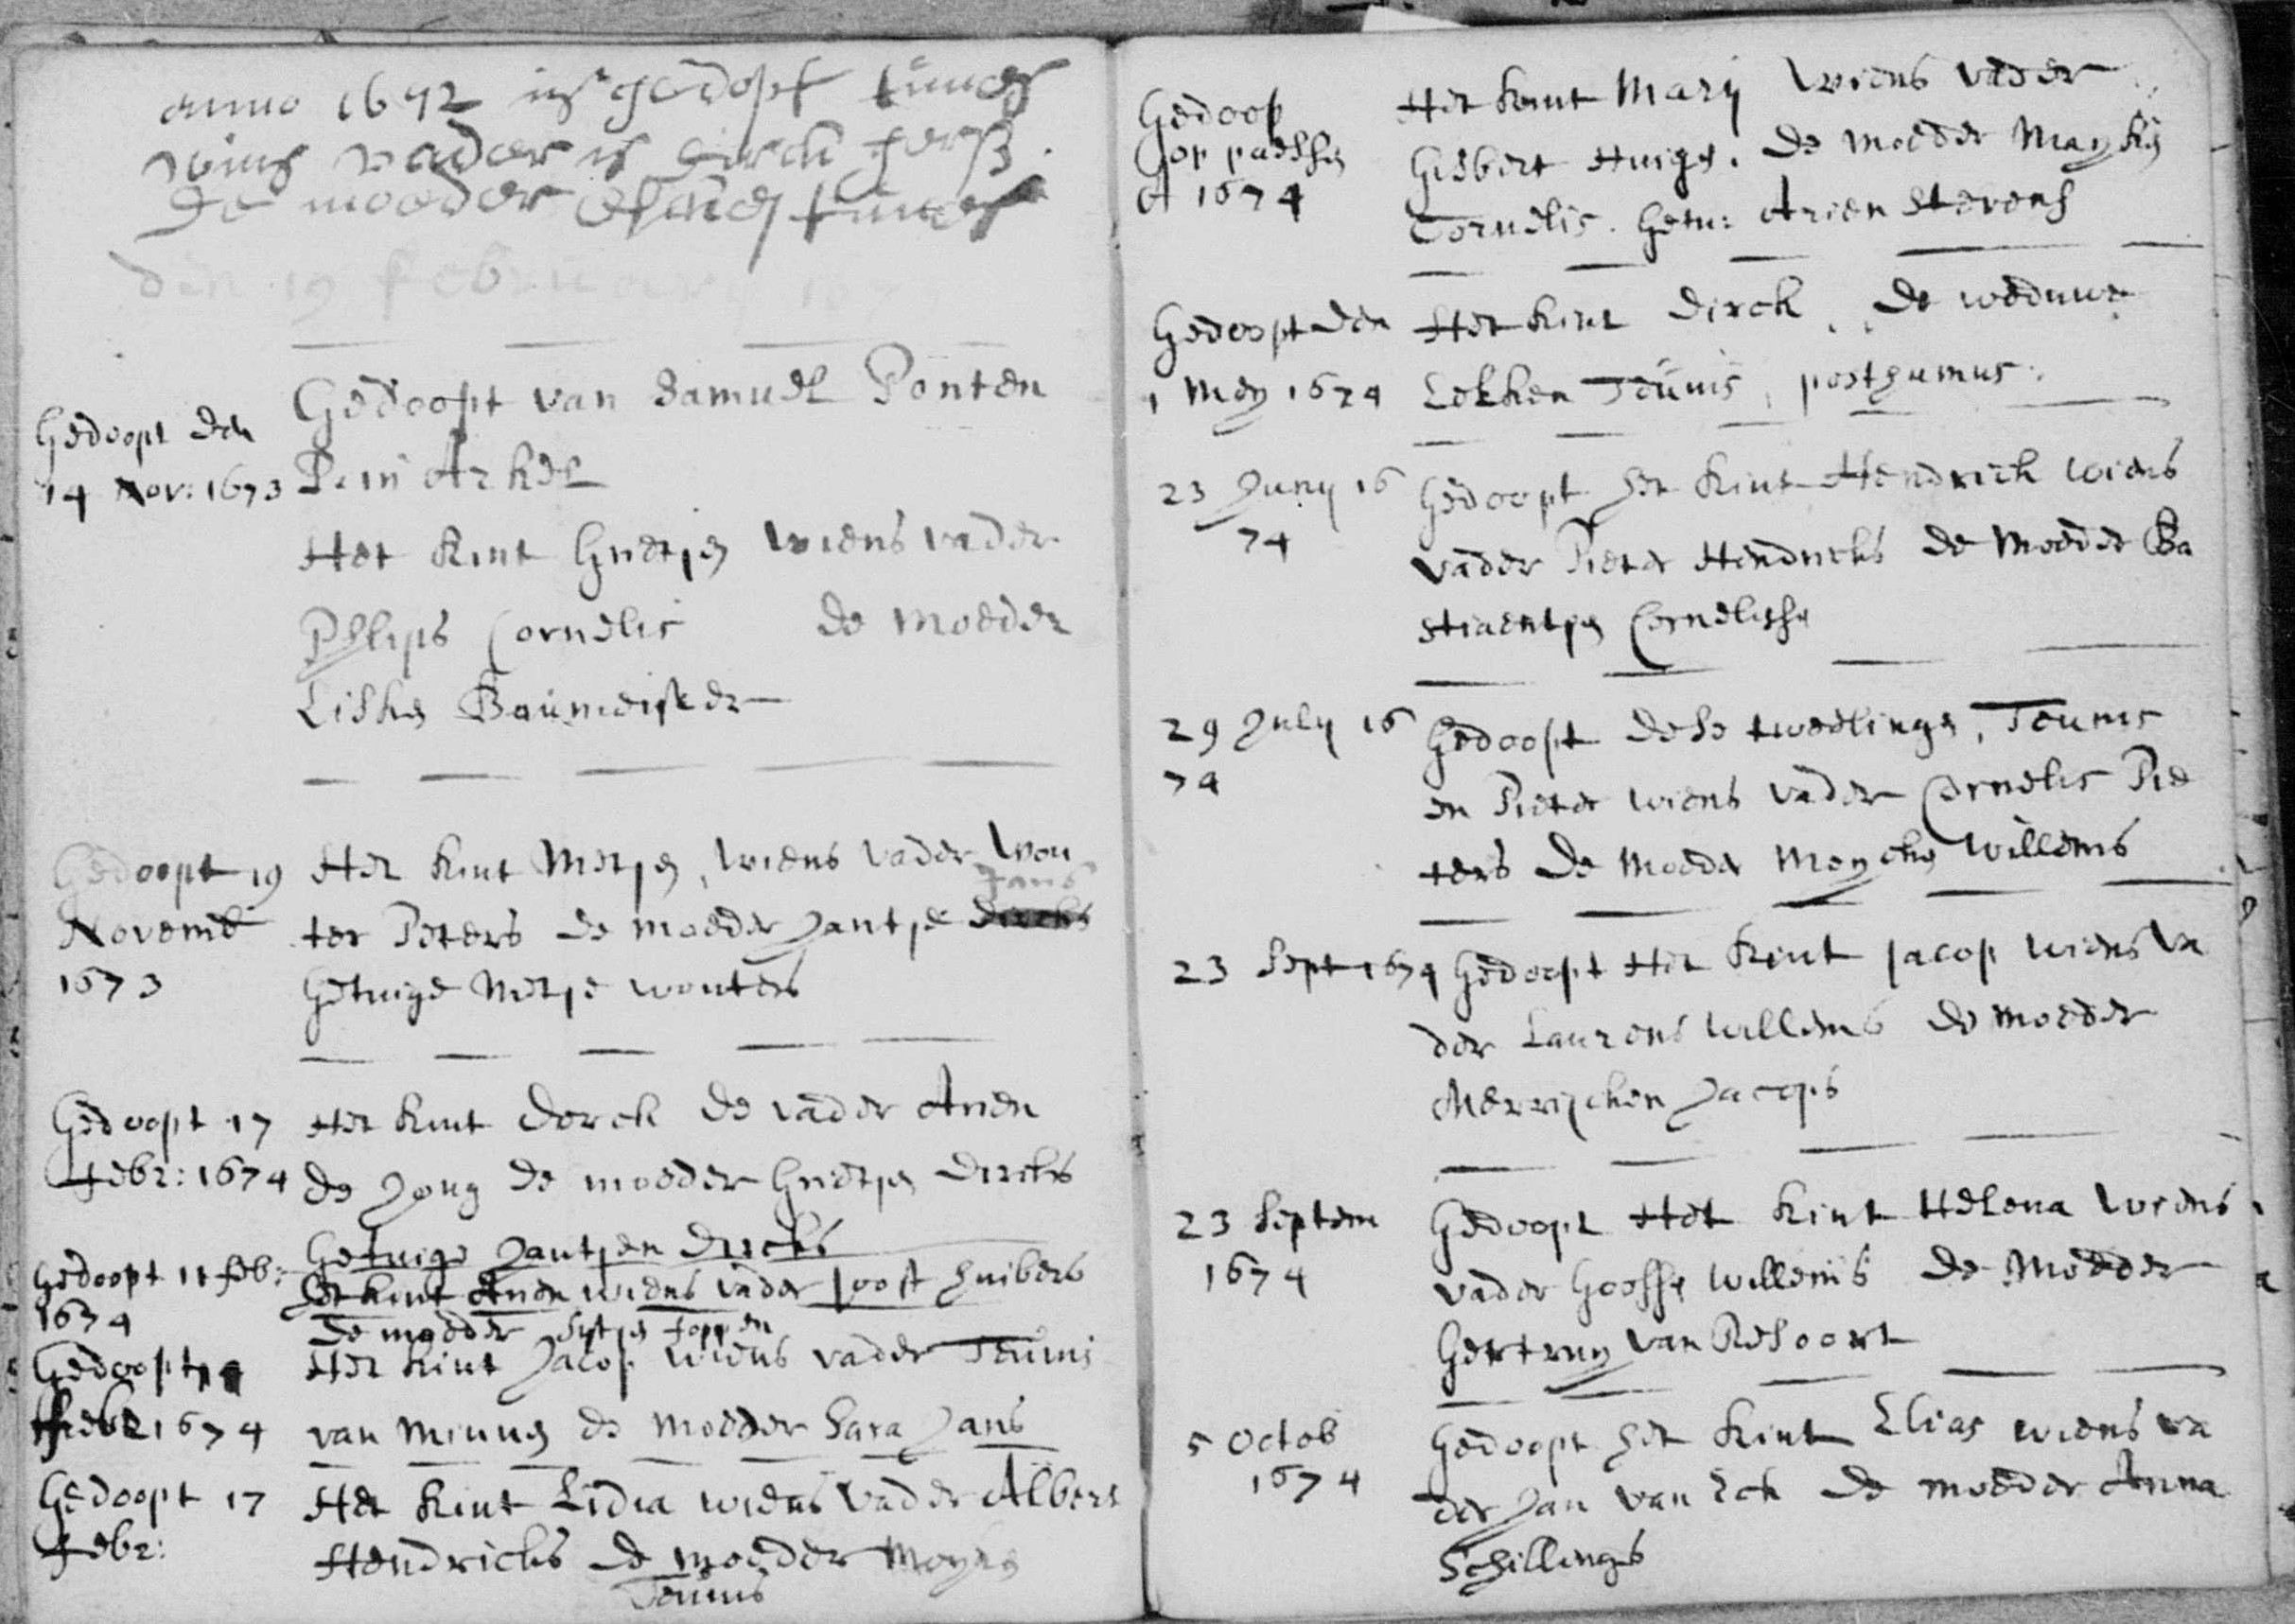 anno 1692 is gedopt tunes
wins vader is
de moeder tunes
den 19 februari 16
Gedoopt den
14 Nov: 1673
Gedoopt van Samuel Ponten
P. in Arkel
Het kint Grietje wiens vader
Phlips Cornelis de moeder
Liske Baumeister
Gedoopt 19
Novemb
1673
Het kint Metje, wiens vader Wou
Jans
ter Peters de moeder Jantje Dircks
Getuige Metje wouters
Gedoopt 17
febr: 1674
Het kint Dorck de vader Arien
de Jong de moeder Grietje Dircks
Getuige Jantjen Dircks
Gedoopt 11 feb:
1674
Het kint Arien wiens vader Joost huibers
de moeder Sytje foppen
Gedoopt
febr 1674
Het kint Jacop wiens vader Teunis
van Minne de moeder Sara Jans
Gedoopt 17
febr:
Het kint Lidia wiens vader Albert
Hendricks de moeder Mayke
Teunis
Gedoop
op paessche
A 1674
Het kint Marij wiens vader
Gisbert Huige. de moeder Mayke
Cornelis. Getu: Arien Stevens
Gedoopt den
1 Mey 1674
Het kint Dirck, de weduwe
Lekken Teunis, posthumus.
23 Juny 16
74
Gedoopt het kint Hendrick wiens
vader Pieter Hendricks de moeder Ba
stiaentje Cornelisse
29 July 16
74
Gedoopt dese tweelinge, Teunis
en Pieter wiens vader Cornelis Pie
ters de moeder Mayche Willems
23 Sept 1674
Gedoopt Het kint Jacop wiens va
der Laurens Willems de moeder
Merrichen Jacops
23 Septem
1674
Gedoopt Het kint Helena wiens
vader Goosse Willems de Moeder
Gertruy van Resoort
5 Octob
1674
Gedoopt het kint Elias wiens va
der Jan van Eck de moeder Anna
Schillings